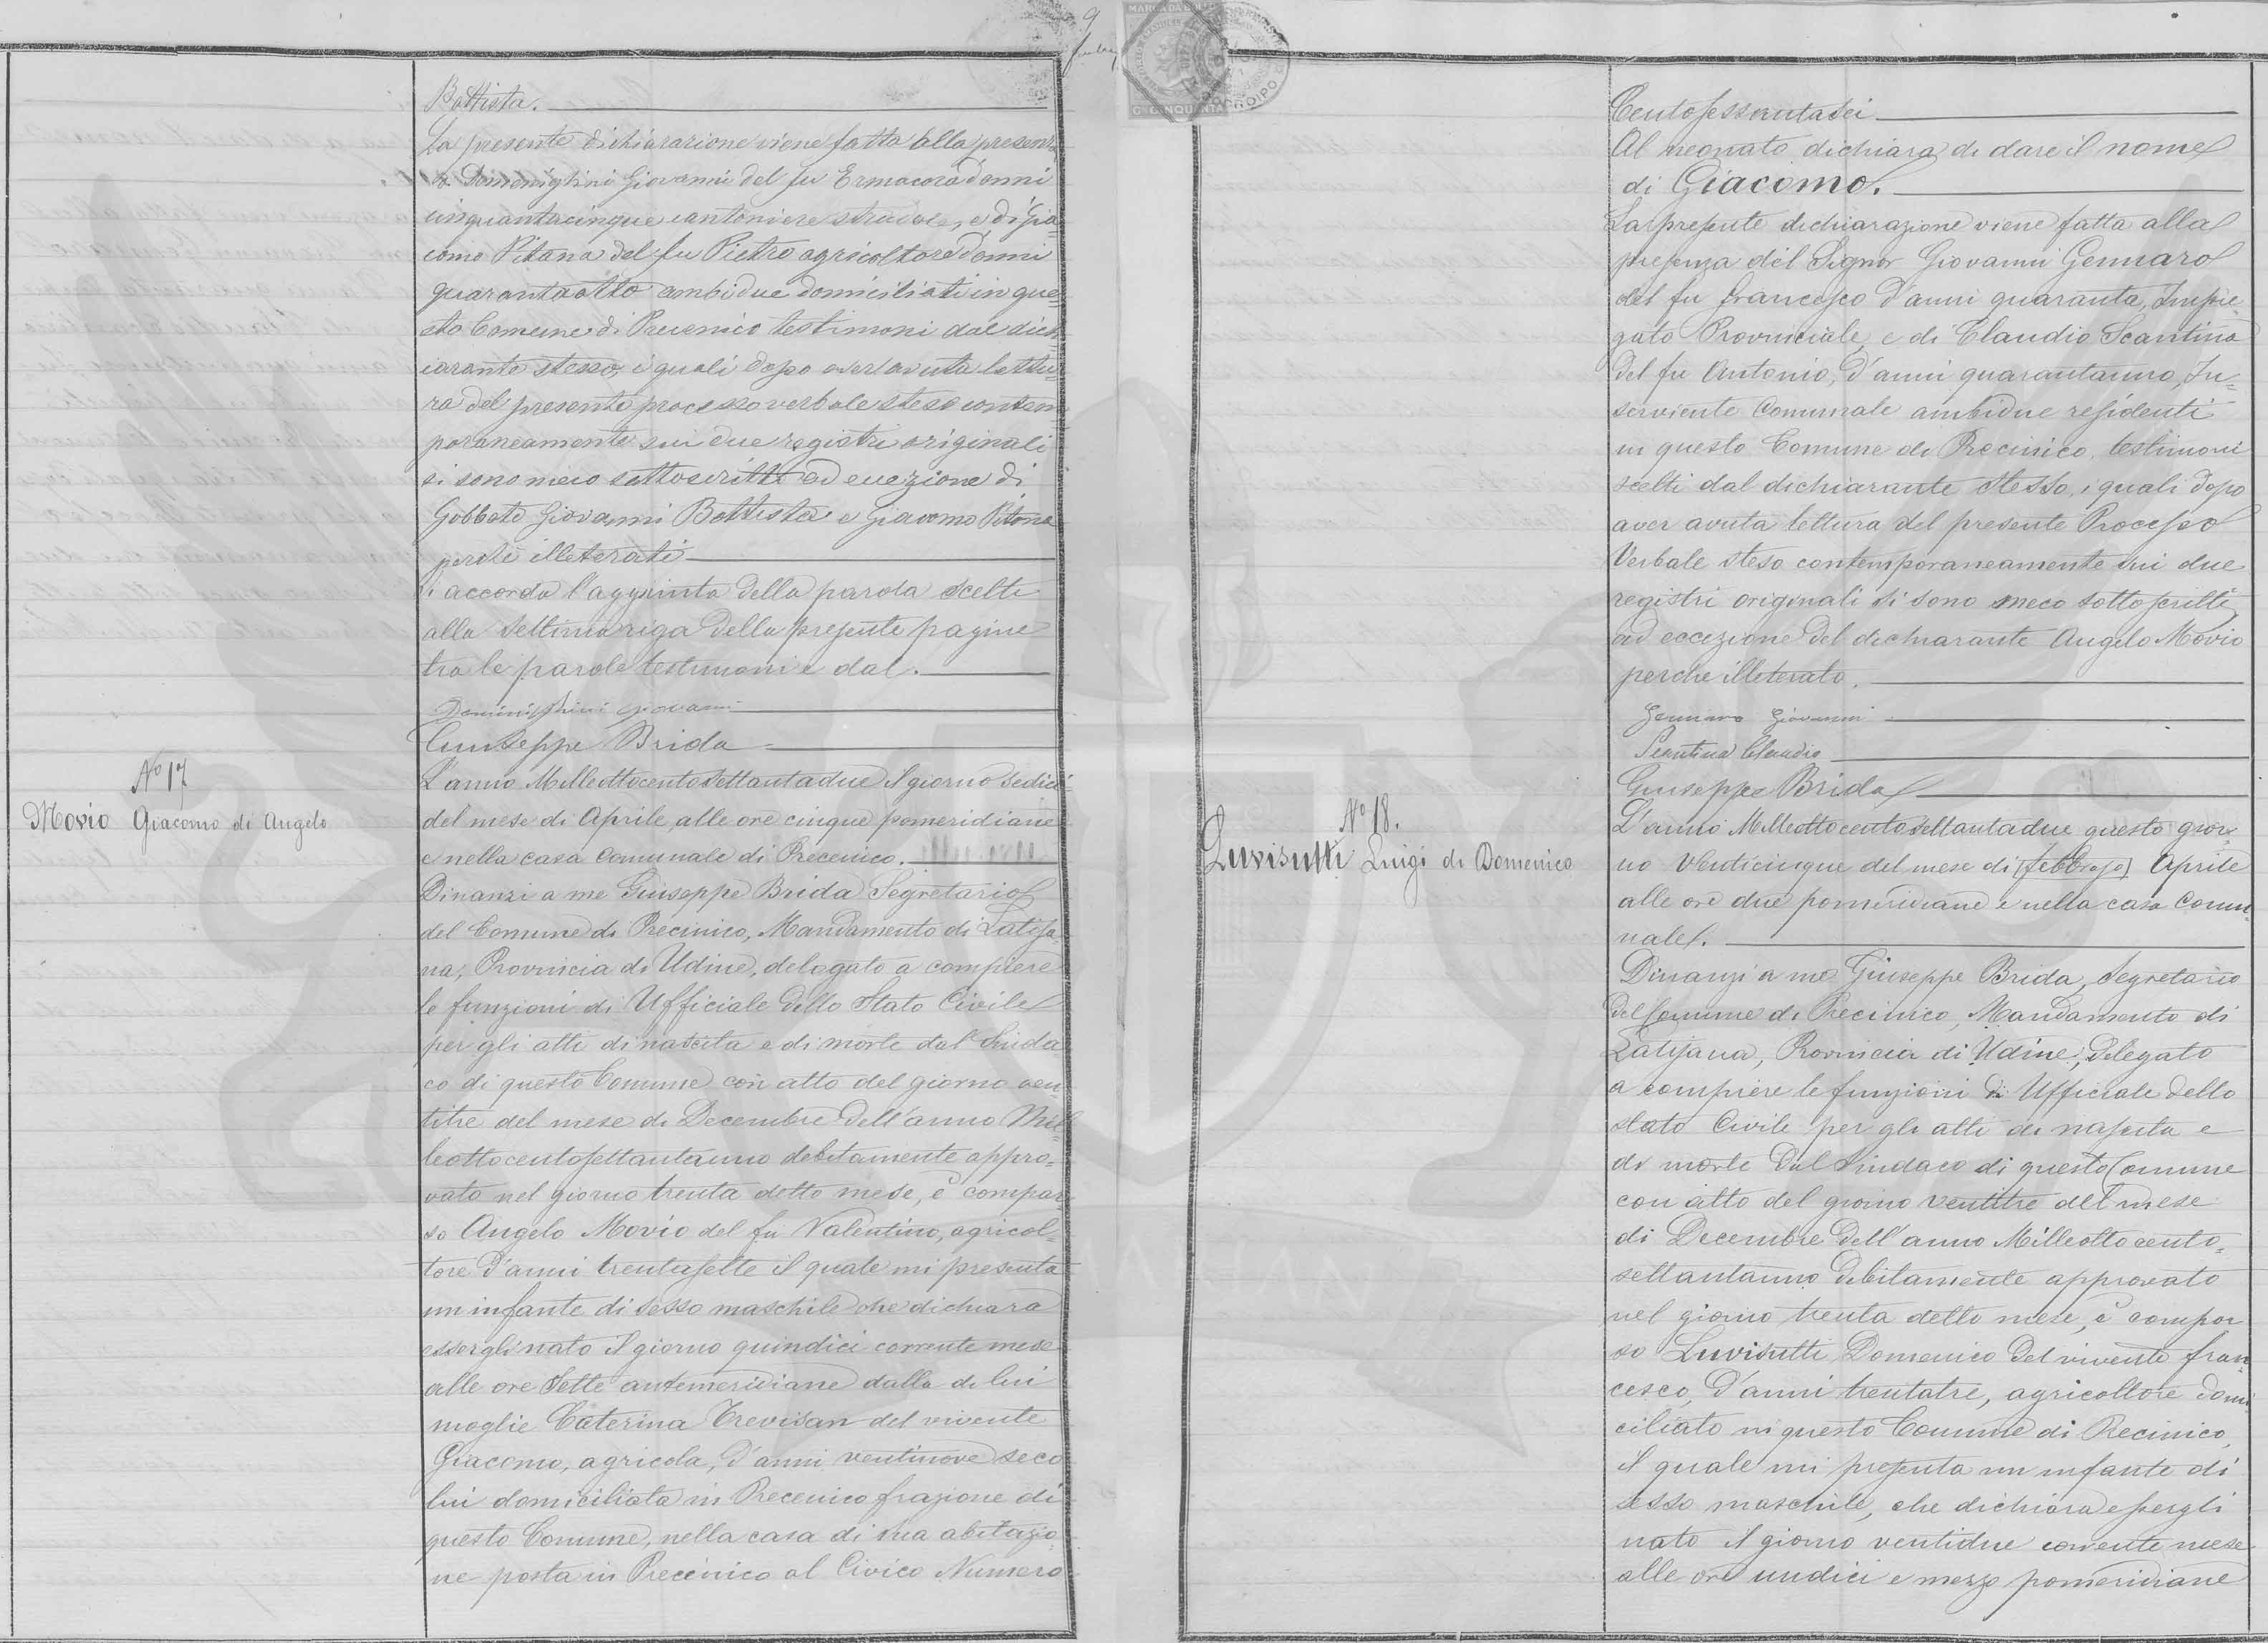 9
MARCA DA BOLLO
Battista.
La presente dichiarazione viene fatta alla presenz
a Domenighini Giovanni del fu Ermacora d'anni
cinquantacinque cantoniere stradale, e di Gia-
como Pitana del fu Pietro agricoltore d'anni
quarantaotto ambidue domiciliati in que-
sto Comune di Precenico testimoni dal dich-
iarante stesso, i quali dopo aver avuta lettu-
ra del presente processo verbale steso contem-
poraneamente sui due registri originali
si sono meco sottoscritti ad eccezione di
Gobbato Giovanni Battista e Giacomo Pitana
perchè illeterati
Si accorda l'aggiunta della parola scelti
alla settima riga della presente pagine
tra le parole testimoni e dal.
Domenighini Giovanni
Giuseppe Brida
N° 17
Movio Giacomo di Angelo
L'anno Milleottocentosettantadue il giorno sedici
del mese di Aprile, alle ore cinque pomeridiane
e nella casa Comunale di Precenico.
Dinanzi a me Giuseppe Brida Segretario
del Comune di Precinico, Mandamento di Latisa-
na, Provincia di Udine, delegato a compiere
le funzioni di Ufficiale dello Stato Civile
per gli atti di nascita e di morte dal Sinda-
co di questo Comune con atto del giorno ven-
titre del mese di Decembre dell'anno Mil-
leottocentosettantauno debitamente appro-
vato nel giorno trenta detto mese, è compar-
so Angelo Movio del fu Valentino, agricol-
tore d'anni trentasette il quale mi presenta
un infante di sesso maschile che dichiara
essergli nato il giorno quindici corrente mese
alle ore sette antemeridiane dalla di lui
moglie Caterina Trevisan del vivente
Giacomo, agricola, d'anni ventinove seco
lui domiciliata in Precenico frazione di
questo Comune, nella casa di sua abitazio-
ne posta in Precenico al Civico Numero
Centosessantasei
Al neonato dichiara di dare il nome
di Giacomo.
La presente dichiarazione viene fatta alla
presenza del Signor Giovanni Gennaro
del fu Francesco d'anni quaranta, Impie-
gato Provinciale, e di Claudio Scantina
del fu Antonio, d'anni quarantauno, In-
serviente Comunale ambidue residenti
in questo Comune di Precinico, testimoni
scelti dal dichiarante stesso, i quali dopo
aver avuta lettura del presente Processo
Verbale steso contemporaneamente sui due
registri originali si sono meco sottoscritti
ad eccezione del dichiarante Angelo Movio
perche illeterato.
Gennaro Giovanni
Scantina Claudio
Giuseppe Brida
N° 18.
Luvisutti Luigi di Domenico
L'anno Milleottocentosettantadue questo gior-
no venticinque del mese di (febbrajo) Aprile
alle ore due pomeridiane e nella casa Comu-
nale.
Dinanzi a me Giuseppe Brida, Segretario
del Comune di Precinico, Mandamento di
Latisana, Provincia di Udine, delegato
a compiere le funzioni di Ufficiale dello
stato Civile per gli atti di nascita e
di morte dal Sindaco di questo Comune
con atto del giorno ventitre del mese
di Decembre dell'anno Milleottocento-
settantauno debitamente approvato
nel giorno trenta detto mese, è compar
so Luvisutti Domenico del vivente Fran-
cesco, d'anni trentatre, agricoltore domi
ciliato in questo Comune di Precinico,
il quale mi presenta un infante di
sesso maschile, che dichiara essergli
nato il giorno ventidue corrente mese
alle ore undici e mezzo pomeridiane